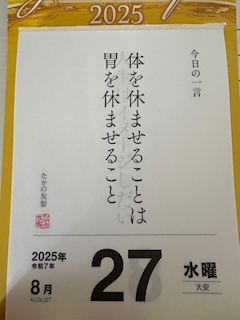 2025
今日の一言
体を休ませることは
胃を休ませること
たかの友梨
2025年
令和7年
8月
AUGUST
27
水曜
大安